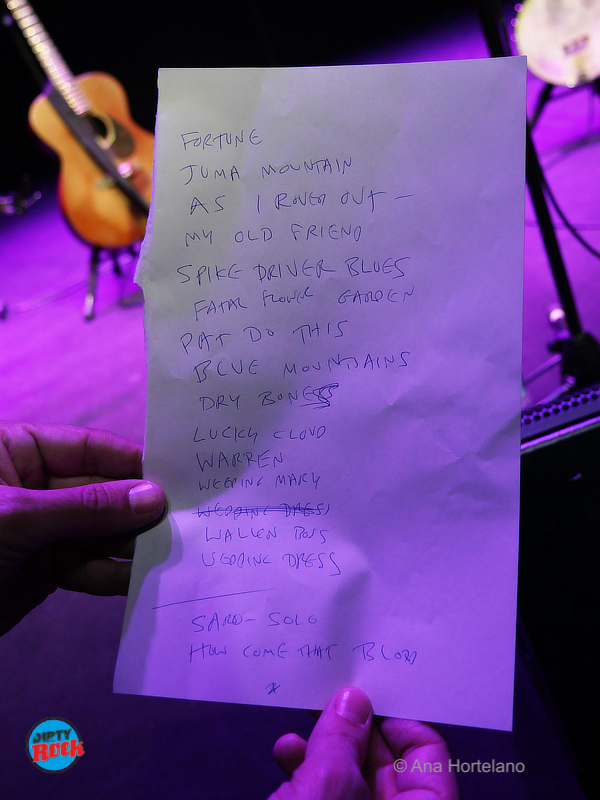 FORTUNE
JUMA MOUNTAIN
AS I ROVED OUT —
MY OLD FRIEND
SPIKE DRIVER BLUES
FATAL FLOWER GARDEN
PAT DO THIS
BLUE MOUNTAINS
DRY BONES
LUCKY CLOUD
WARREN
WEEPING MARY
WEDDING DRESS
WALKEN BOYS
WEDDING DRESS
SARO - SOLO
HOW COME THAT BLOOD
DIRTY
ROCK
© Ana Hortelano